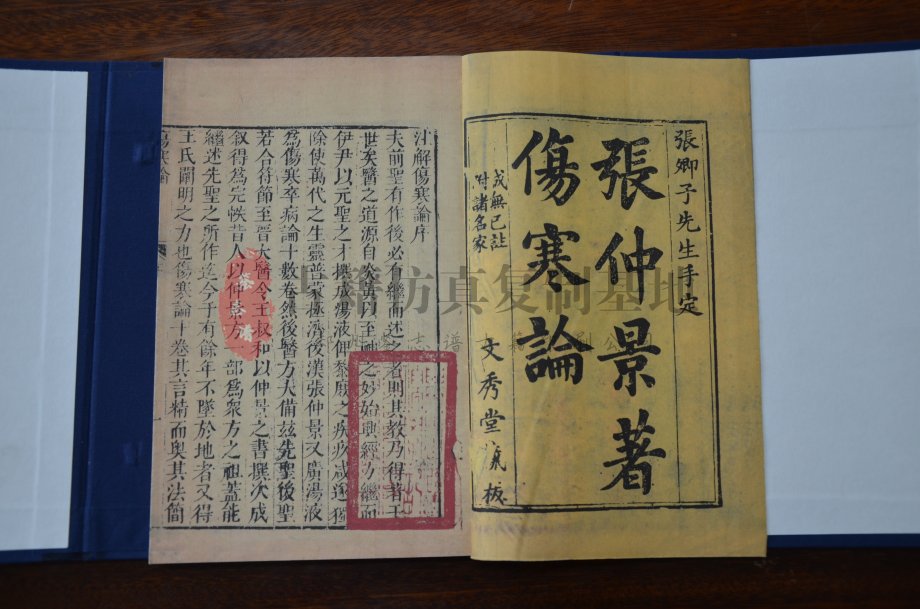 張卿子先生手定
張仲景著
傷寒論
成無已註
附諸名家
文秀堂藏板
注解傷寒論序
夫前聖有作後必有繼而述之者則其教乃得著于
世矣醫之道源自炎黃以至神之妙始興經方繼而
伊尹以元聖之才撰成湯液俾黎庶之疾疢咸遂蠲
除使萬代之生靈普蒙拯濟後漢張仲景又廣湯液
為傷寒卒病論十數卷然後醫方大備茲先聖後聖
若合符節至晉太醫令王叔和以仲景之書撰次成
敘得為完帙昔人以仲景方一部為眾方之祖蓋能
繼述先聖之所作迄今千有餘年不墜於地者又得
王氏闡明之力也傷寒論十卷其言精而奧其法簡
傷寒論
籍仿真复制基地